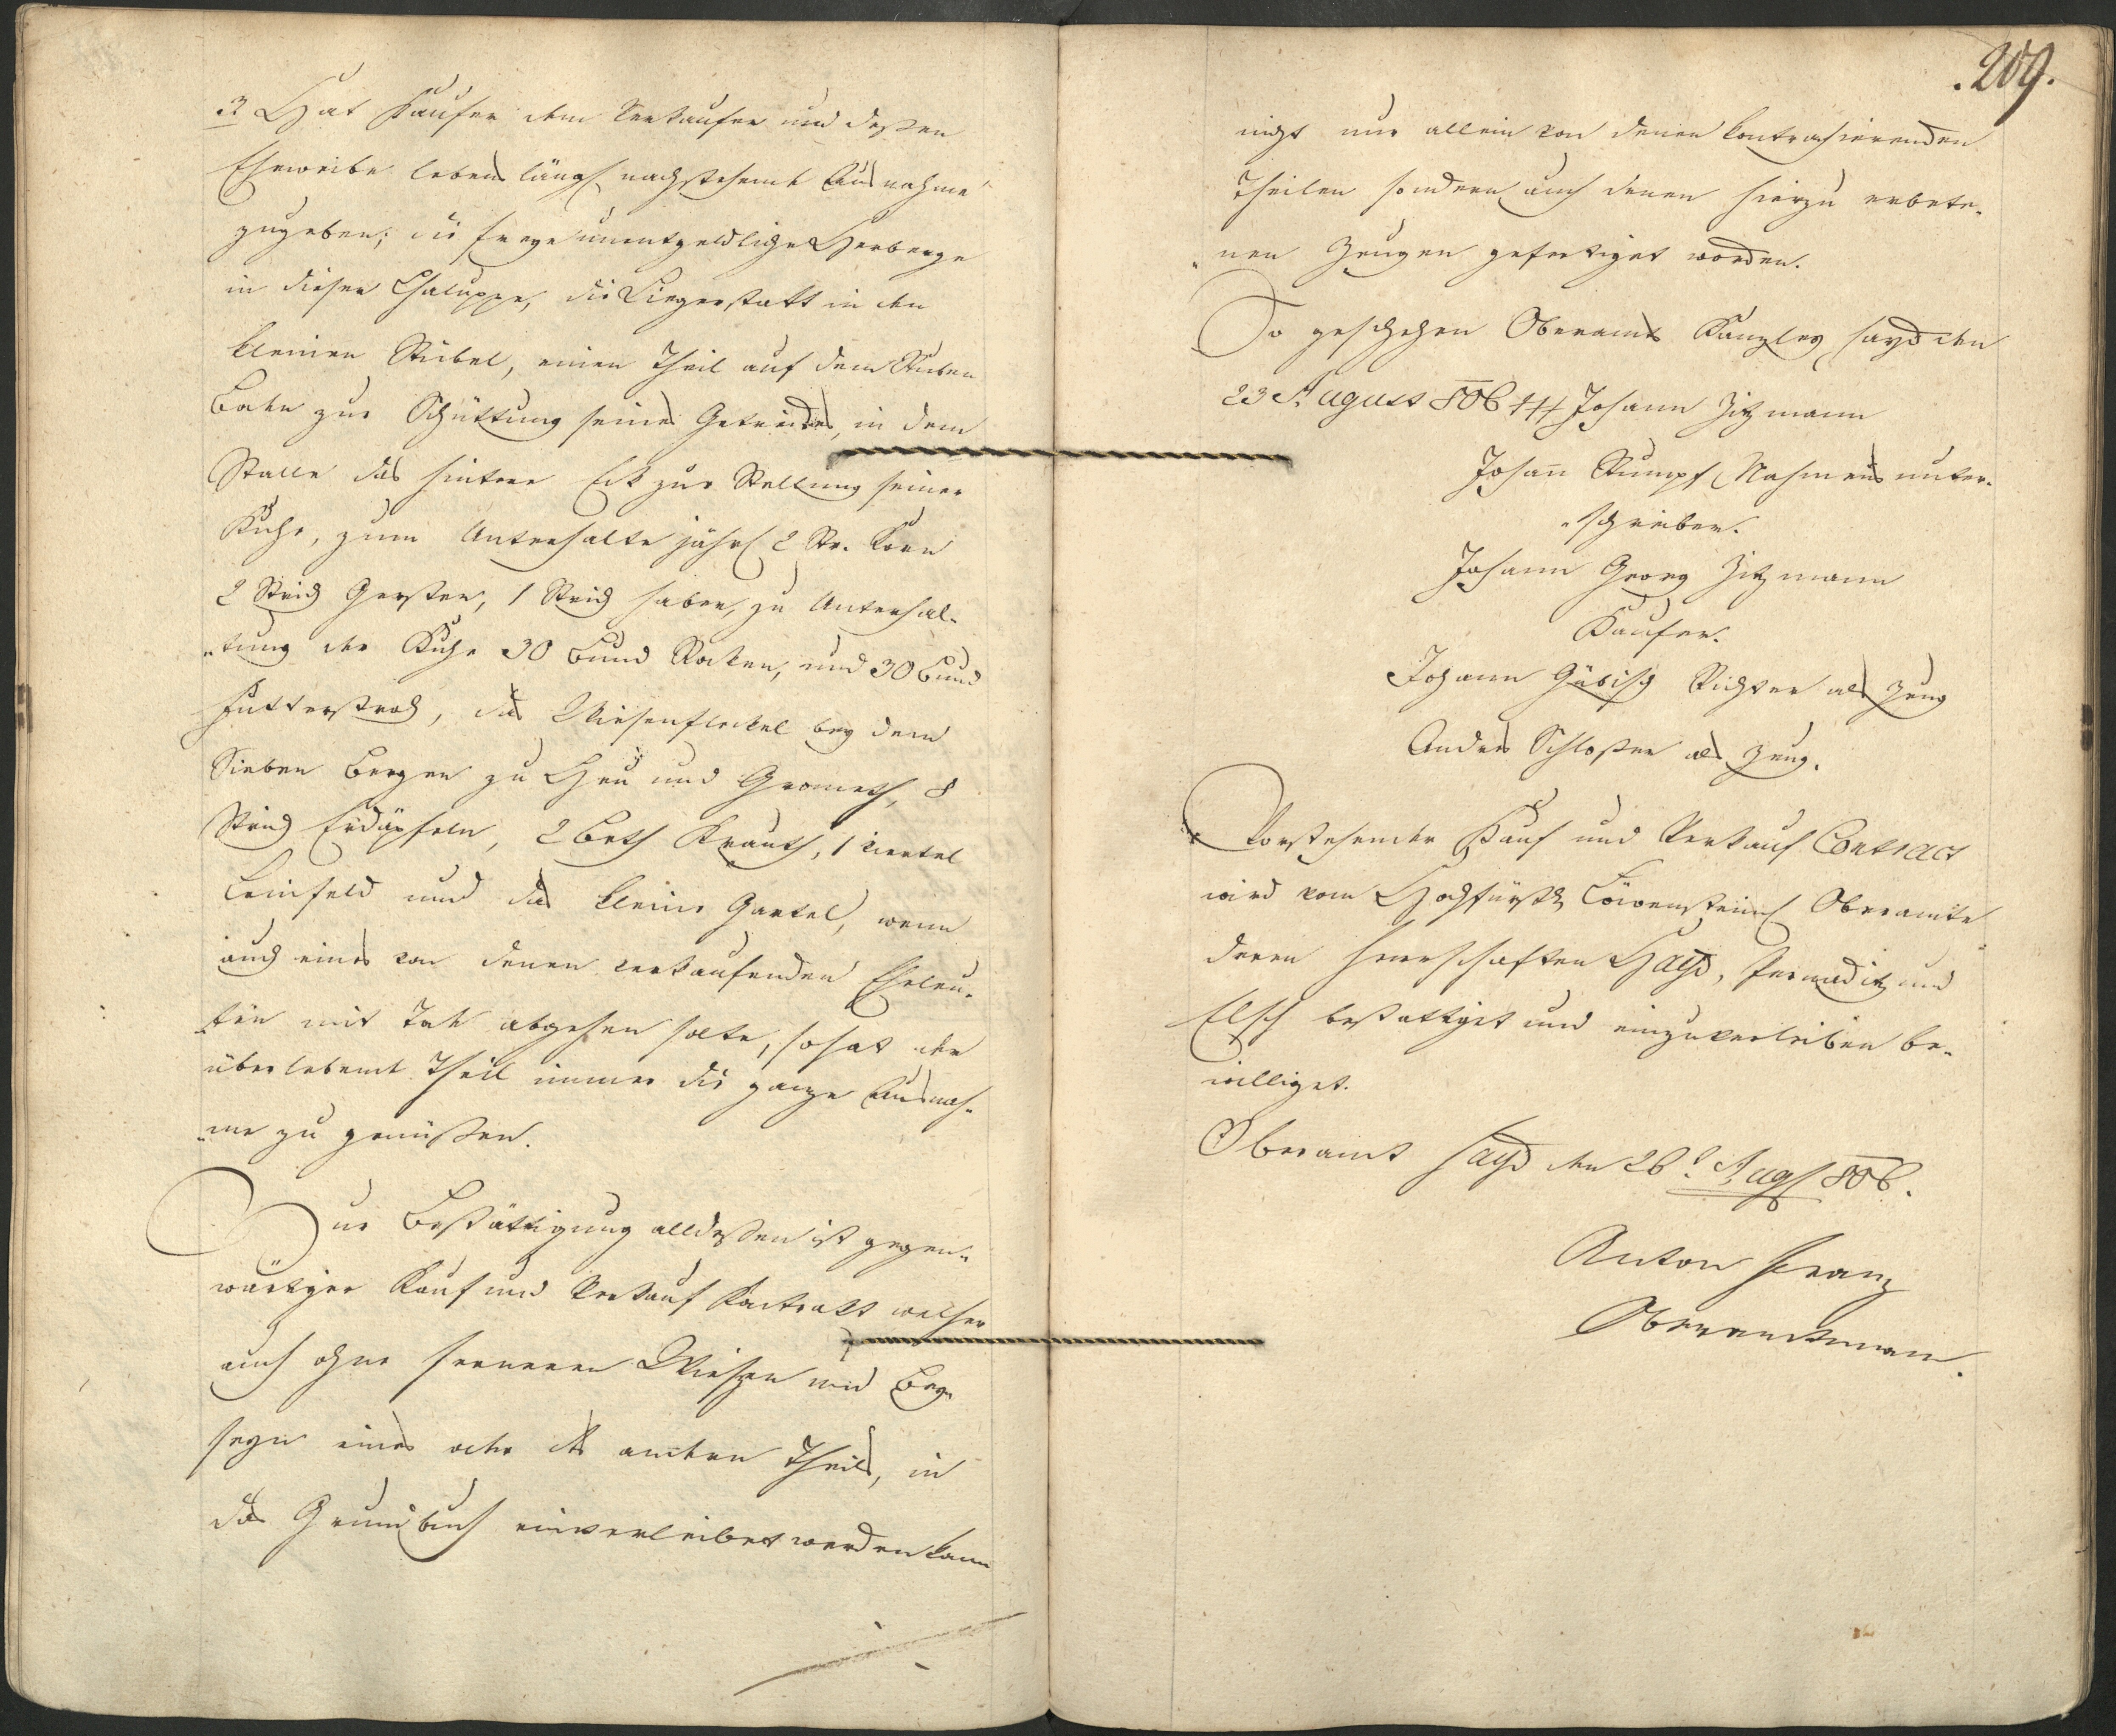 3 Hat Kaufer dem Verkaufer und deßen
Eheweibe lebenslängl. nachstehende Ausnahme
zugeben; die freye unentgeldliche Herberge
in dieser Chaluppe, die Liegerstatt in den
kleinen Stübel, einen Theil auf dem Stuben
Boden zur Schüttung seines Getreides, in dem
Stalle das hintere Eck zur Stellung seiner
Kuhe, zum Unterhalte jährl. 2 Str. Korn
2 Strich Gersten, 1 Strich Haber, zu Unterhal-
"tung der Kuhe 30 Bund Rocken, und 30 Bund
Futterstroh, das Wiesenfleckel bey dem
Sieben Bergen zu Heu und Grometh, 8
Strich Erdäpfeln, 2 Beth Krauth, 1 Viertel
Leinfeld und das kleine Gartel, wenn
auch eines von denen verkaufenden Eheleu-
"ten mit Tode abgehen solte, so hat der
überlebende Theil immer die ganze Ausnah-
"me zu genüßen.
Zur Bestättigung alldeßen ist gegen-
wärtiger Kauf und Verkauf Kontrakt welcher
auch ohne ferneren Wießen und Bey-
seyn eines oder des andern Theils, in
das Grundbuch einverleibet werden kann
.209.
nicht nur allein von denen kontrahierenden
Theilen sondern auch denen hierzu erbete-
"nen Zeugen gefertiget worden.
So geschehen Oberamts Kanzley Hayd den
23 August 806 +++ Johann Zitzmann
Johan̄ Stumpf Nahmens unter-
"schrieben.
Johann Georg Zitzmann
Kaufer.
Johann Gäbisch Richter als Zeug
Anders Schloßer als Zeug.
Vorstehender Kauf und Verkauf Contract
wird vom Hochfürstl. Löwensteinl. Oberamte
deren Herrschaften Hayd, Pernaditz und
Elsch bestattiget und einzuverleiben be-
williget.
Oberamt Hayd den 26t. Aug. 806.
Anton Franz
Oberamtmann.